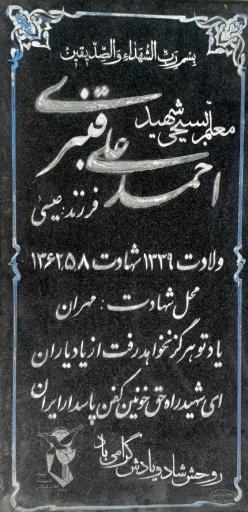 بسم رب الشهداء و الصدیقین
معلم بسیجی شهید
احمد علی قنبری
فرزند: عیسی
ولادت ۱۳۳۹ شهادت ۱۳۶۲،۵،۸
محل شهادت: مهران
یاد تو هرگز نخواهد رفت از یاد یاران
ای شهید راه حق خونین کفن پاسدار ایران
روحش شاد و یادش گرامی باد